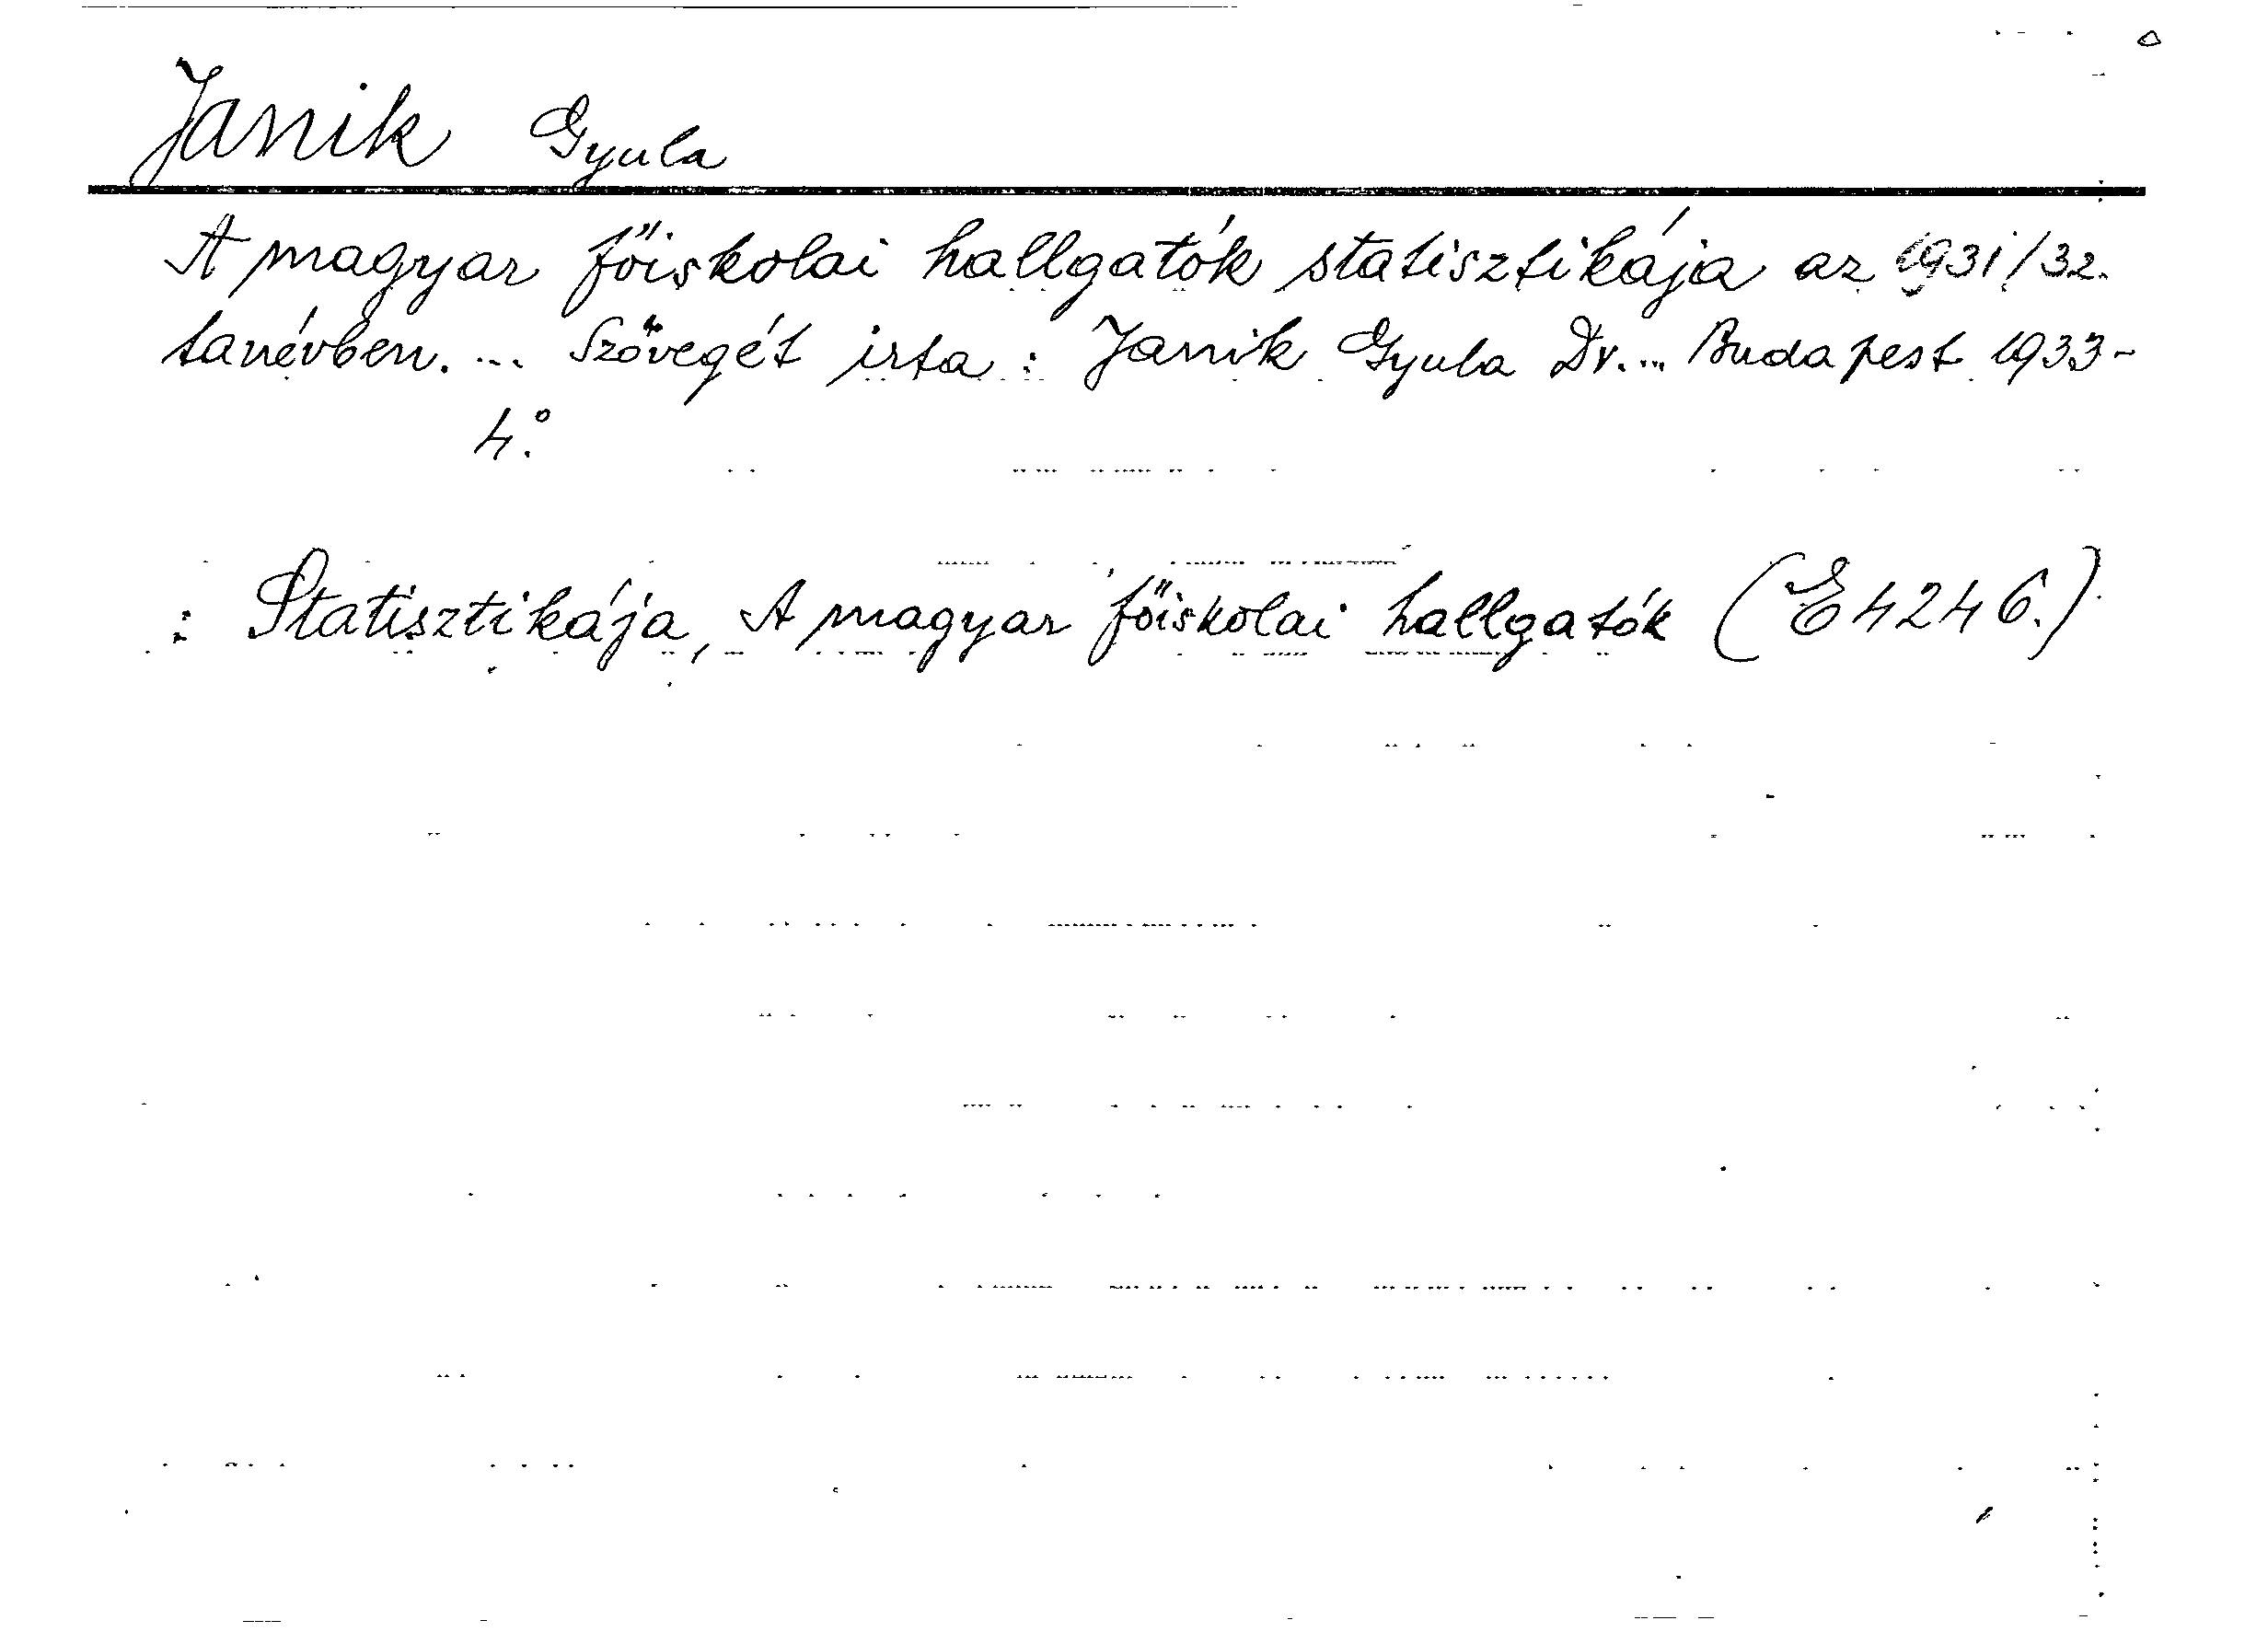 Janik Gyula
A magyar főiskolai hallgatók statisztikája az 1931/32.
tanévben. ... Szövegét irta: Janik Gyula Dr. ... Budapest 1933-
4.°
: Statisztikája, A magyar főiskolai hallgatók (E 4246.)